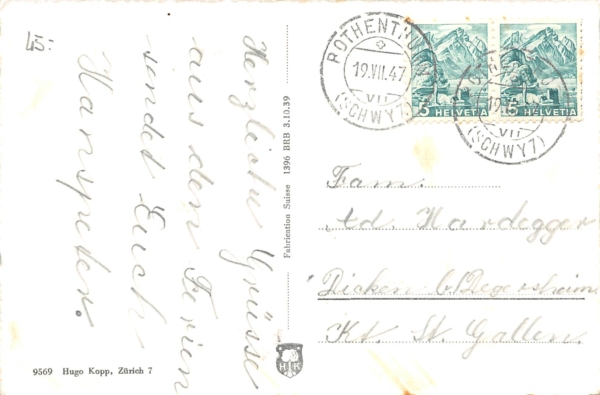 45.
Herzliche Grüsse
aus den Ferien
sendet Euch
Hanspeter.
9569 Hugo Kopp, Zürich 7
Fabrication Suisse 1396 BRB 3.10.39
HK
ROTHENTHURM
19.VII.47
VII
(SCHWYZ)
5 HELVETIA
5 HELVETIA
19.
VII
(SCHWYZ)
Fam.
Ad. Hardegger
Dicken b/Degersheim
Kt. St. Gallen.